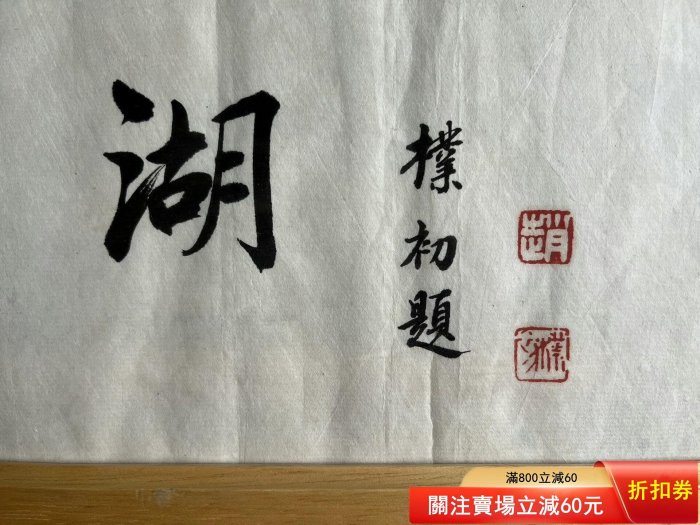 湖
樸初題
趙
樸初
滿800立減60
關注賣場立減60元
折扣券